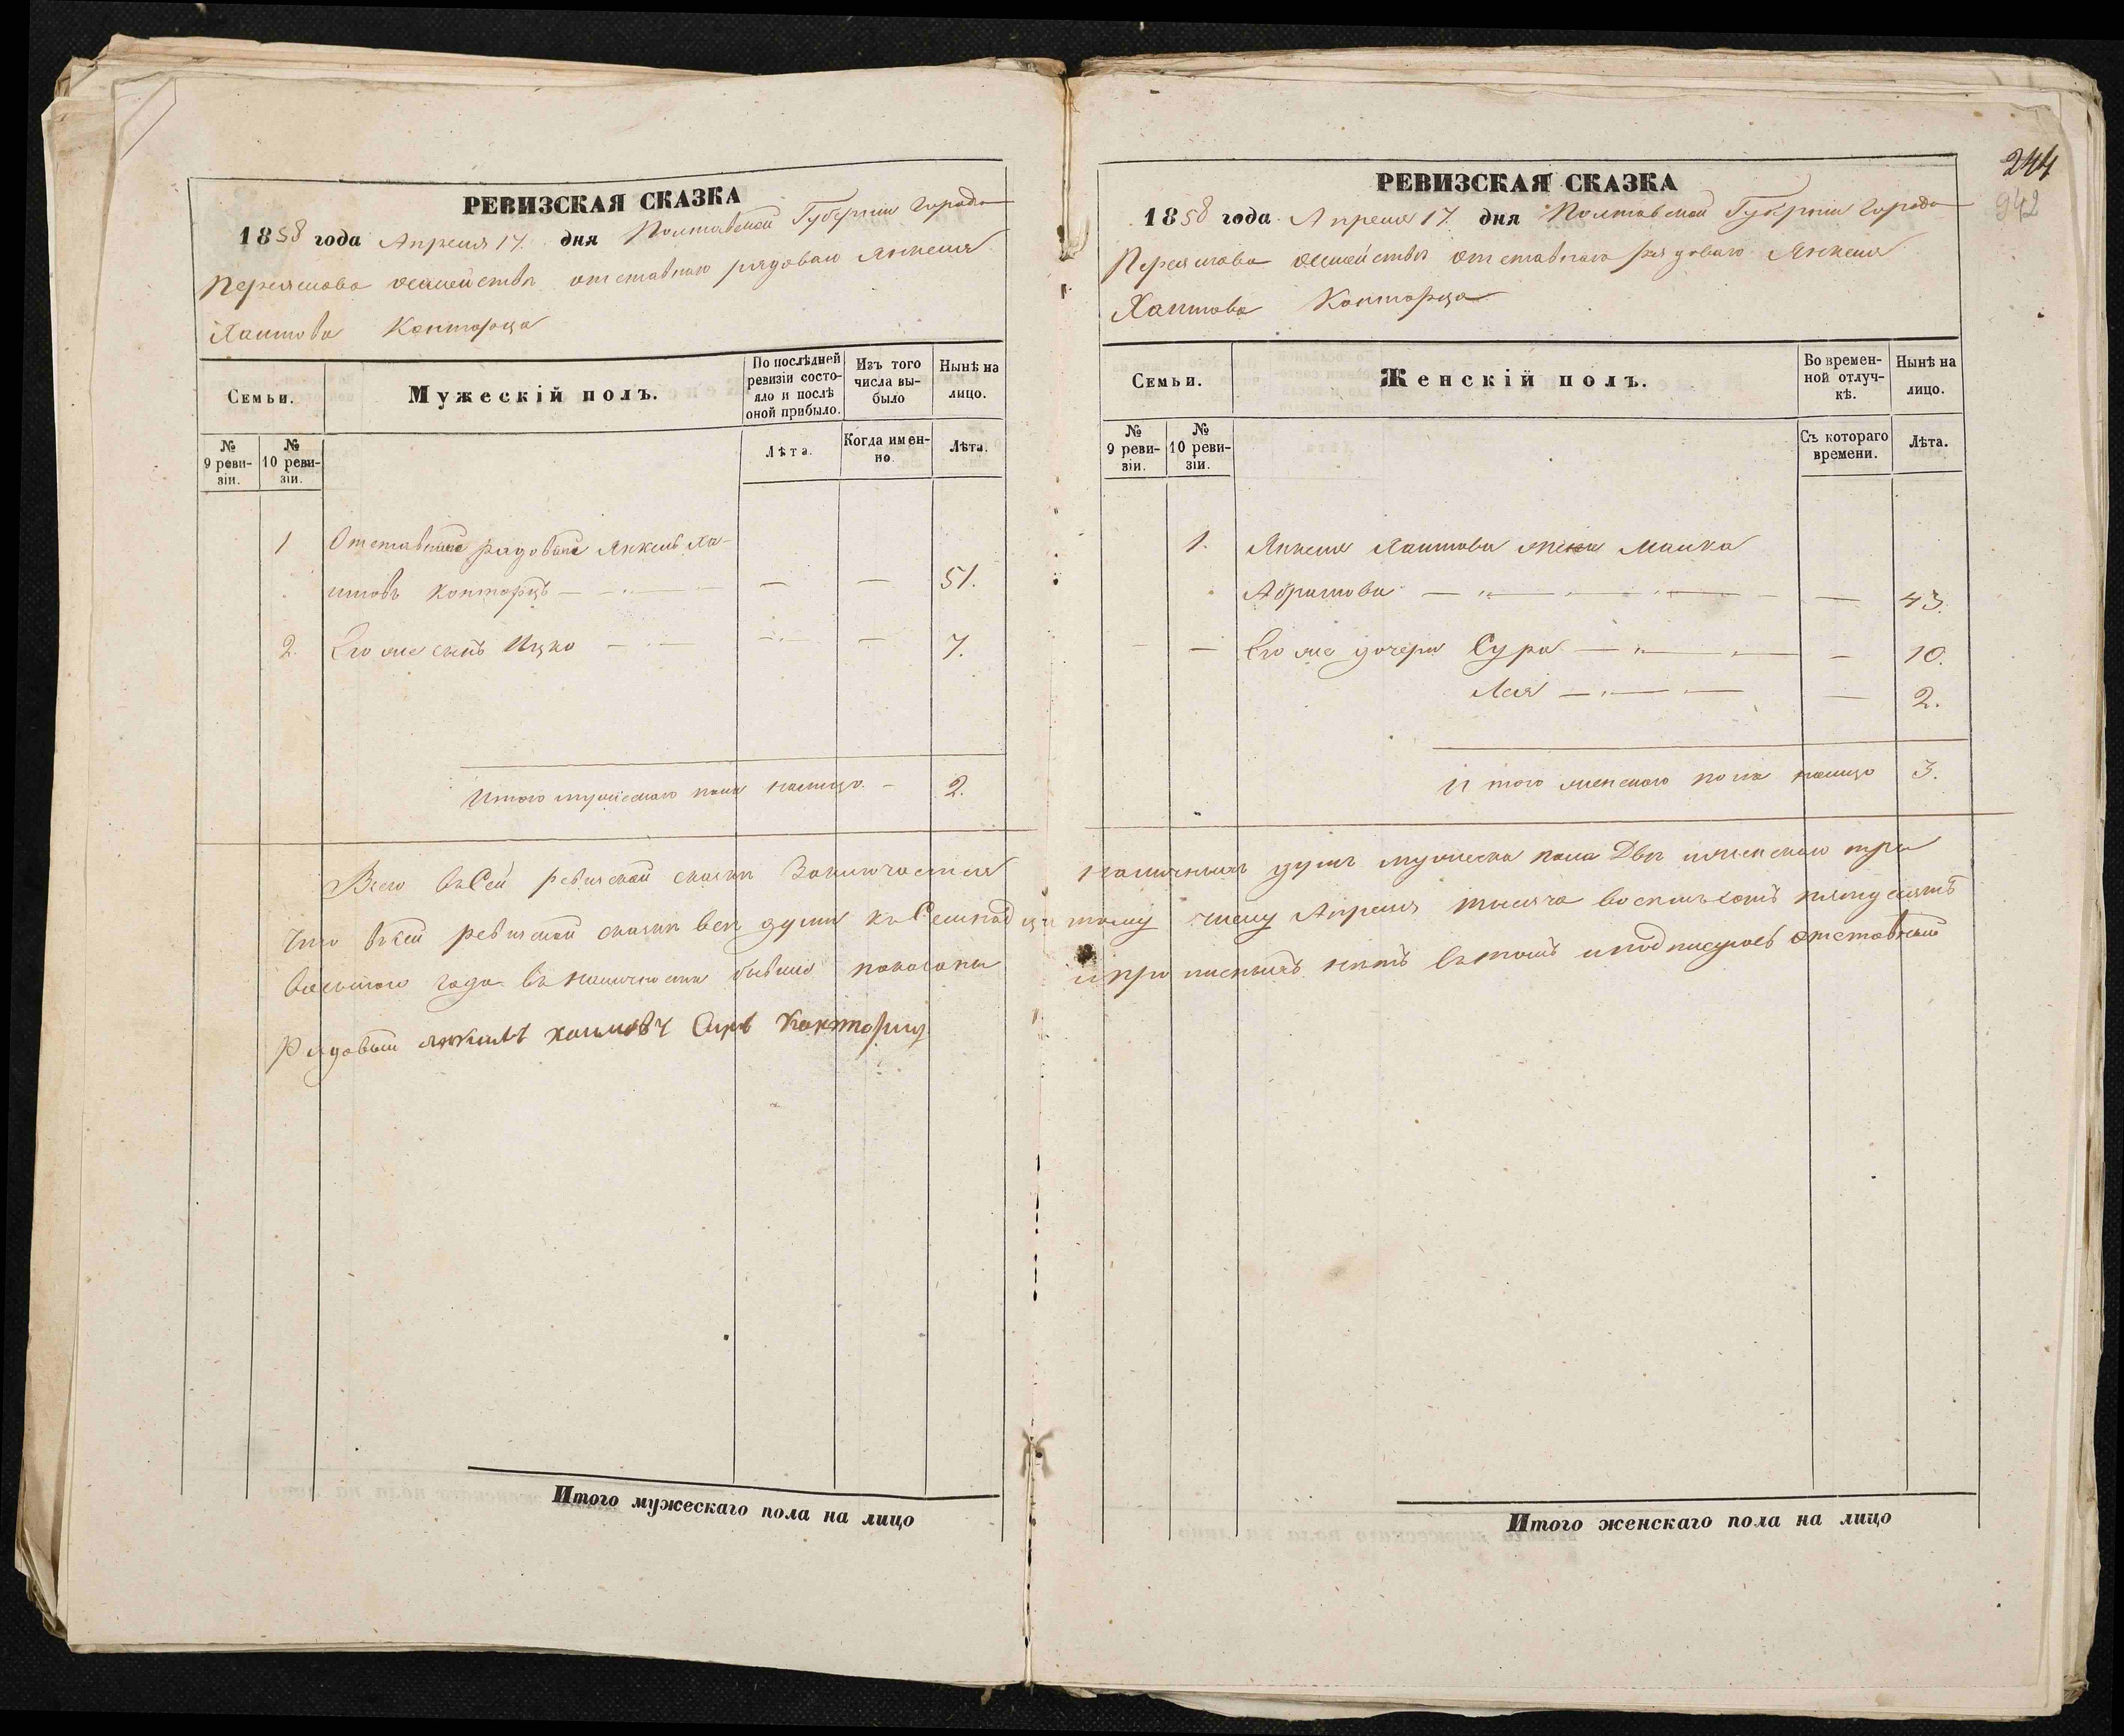 РЕВИЗСКАЯ СКАЗКА
1858 года Апреля 17. дня Полтавской Губернии Города
Переяслава о семействѣ отставнаго рядоваго Янкеля
Хаимова Конторца
Семьи.
Мужескій полъ.
По послѣдней ревизіи состояло и послѣ оной прибыло.
Изъ того числа выбыло
Нынѣ на лицо.
№ 9 ревизіи.
№ 10 ревизіи.
Лѣта.
Когда именно
Лѣта.
1 Отставный рядовый Янкель Ха-
имовъ Конторцъ — — — 51.
2. Его же сынъ Ицко — — — 7.
Итого мужескаго пола налицо — 2.
Всего въ Сей ревизской сказки Заключается
Что въ сей ревизской сказки всѣ души къ Семнадца
восьмого года въ наличности бывшие показаны
Рядовый янкиль хаимовъ Конторщ
244
942
РЕВИЗСКАЯ СКАЗКА
1858 года Апреля 17. дня Полтавской Губерніи Города
Переяслова о семействѣ отставнаго рядоваго Янкеля
Хаимова Конторца
Семьи.
Женскій полъ.
Во временной отлучкѣ.
Нынѣ на лицо.
№ 9 ревизіи.
№ 10 ревизіи.
Съ котораго времени.
Лѣта.
1. Янкеля Хаимова жена Малка
Абрамова — — — 43.
— — Его же дочери Сура — — — 10.
Лея — — — 2.
Итого женскаго пола налицо 3.
наличныхъ душъ мужеска пола Двѣ и женскаго три
тому числу Апреля тысяча восемьсотъ пятдесятъ
и прописныхъ нѣтъ въ томъ и подписуюсь отставный
Итого мужескаго пола на лицо
Итого женскаго пола на лицо